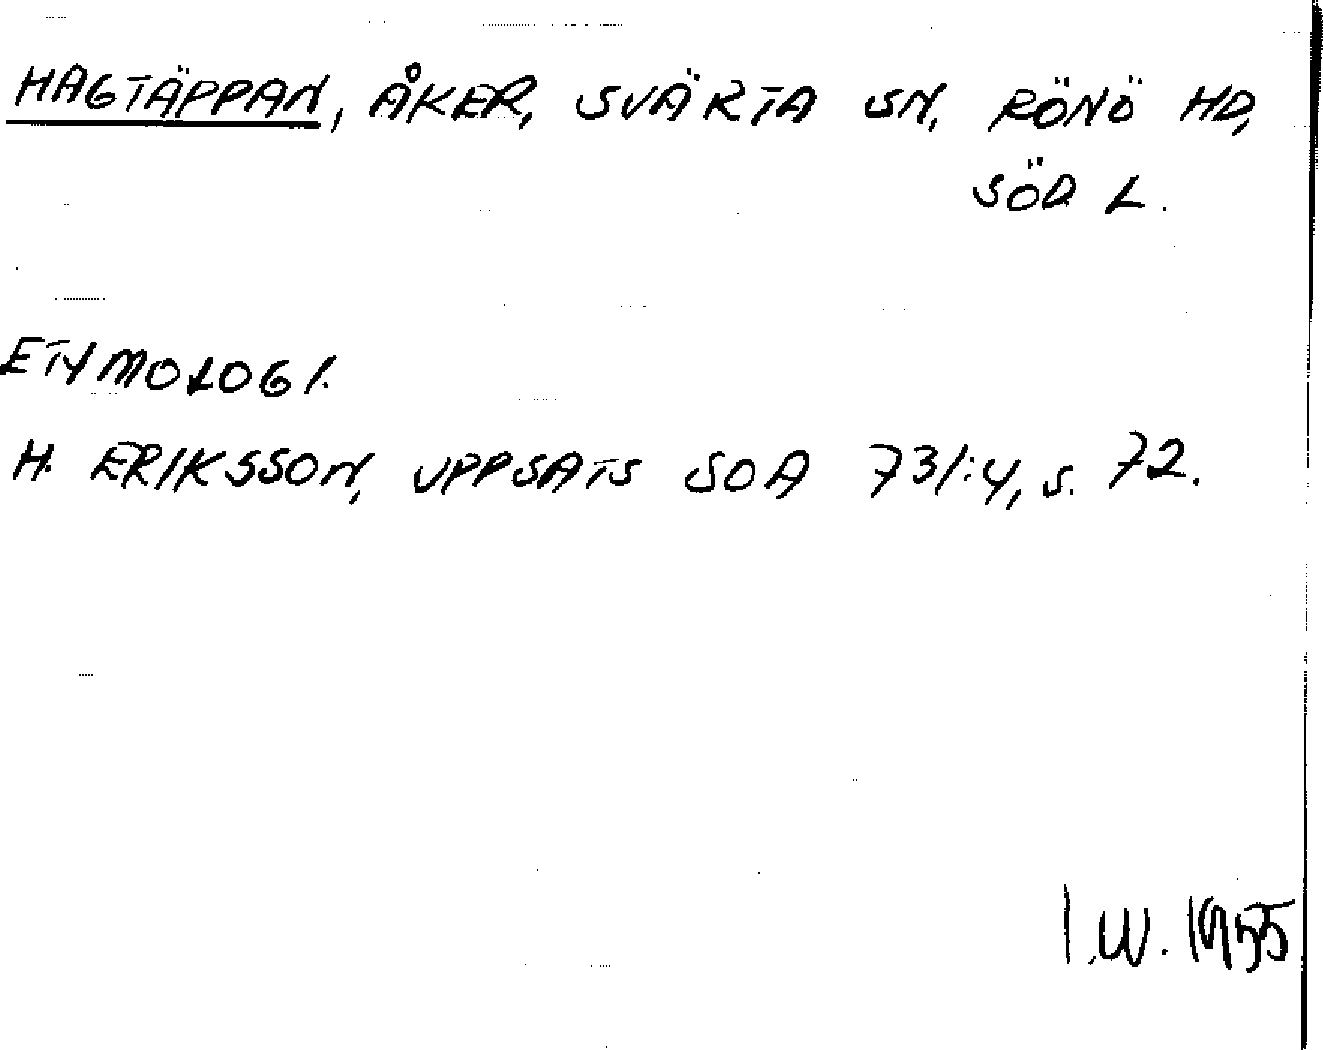 HAGTÄPPAN, ÅKER, SVÄRTA SN, RÖNÖ HD,
SÖD L.
ETYMOLOGI.
H. ERIKSSON, UPPSATS SOA 731:4, s. 72.
I.W. 1955